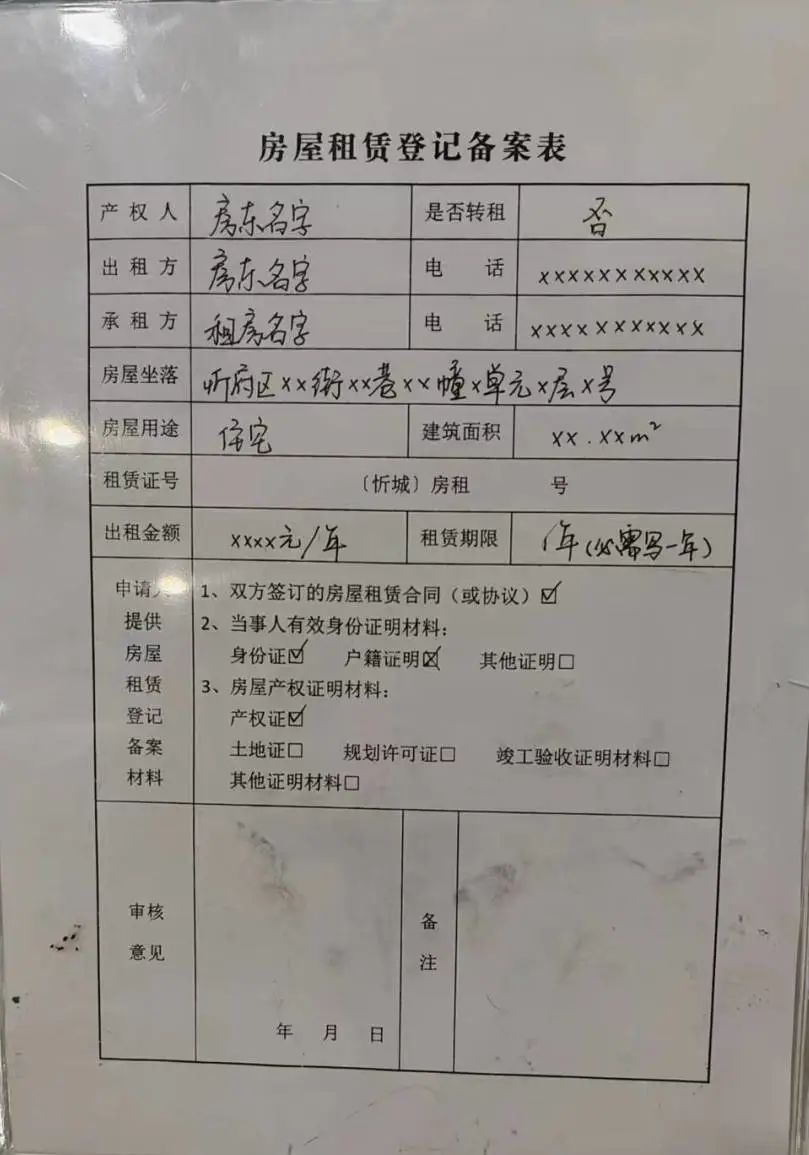 房屋租赁登记备案表
产权人 房东名字 是否转租 否
出租方 房东名字 电话 xxxxxxxxxxx
承租方 租房名字 电话 xxxxxxxxxxxx
房屋坐落 忻府区xx街xx巷xx幢x单元x层x号
房屋用途 住宅 建筑面积 xx.xxm²
租赁证号 〔忻城〕房租 号
出租金额 xxxx元/年 租赁期限 1年(必需写一年)
申请人提供房屋租赁登记备案材料
1、双方签订的房屋租赁合同（或协议）☑
2、当事人有效身份证明材料：
身份证☑ 户籍证明☒ 其他证明□
3、房屋产权证明材料：
产权证☑
土地证□ 规划许可证□ 竣工验收证明材料□
其他证明材料□
审核意见
年 月 日
备注